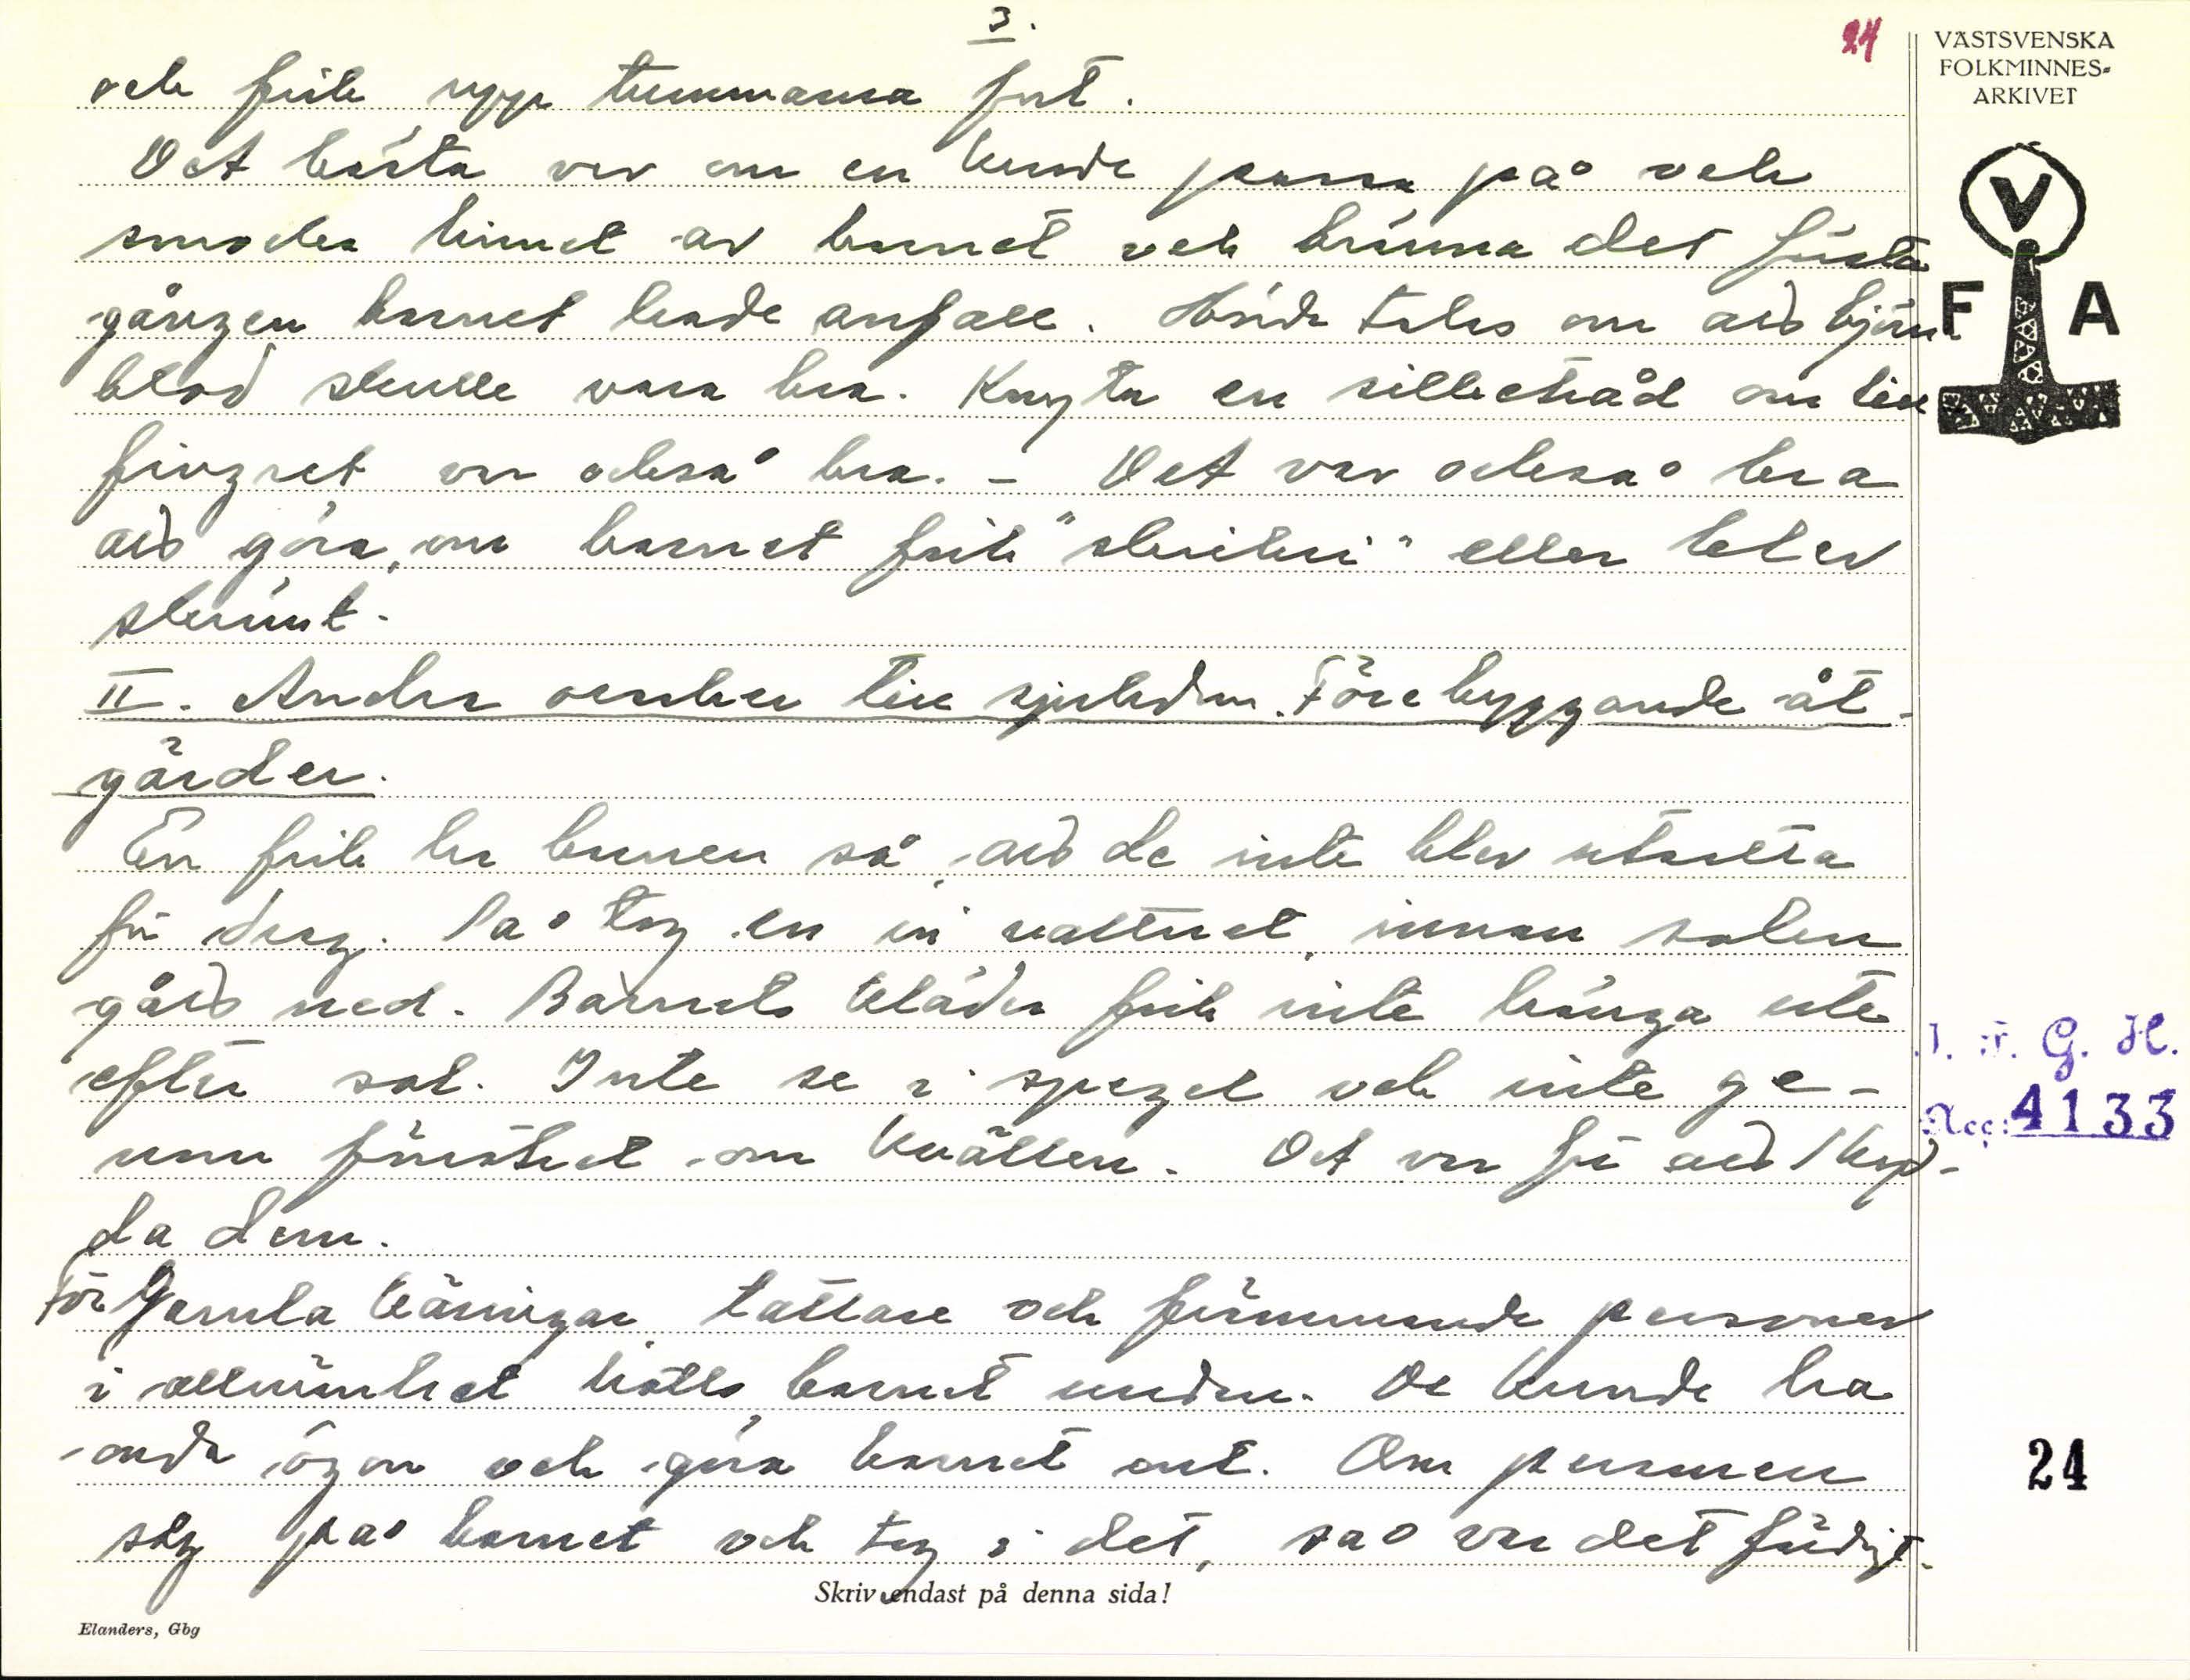 3.
24
och fick upp tummarna fort.
Det bästa var om en kunde passa på och
smocka linnet av barnet och bränna det första
gången barnet hade anfall. Hörde talas om att björn-
blod skulle vara bra. Knyta en silketråd om lill
fingret var också bra. - Det var också bra
att göra, om barnet fick "skrickri" eller blev
skrämt.
II. Andra orsaker till sjukdom. Förebyggande åt-
gärder.
En fick ha barnen så, att de inte blev utsatta
för drag. Så tog en in vattnet, innan solen
gått ned. Barnets kläder fick inte hänga ute
efter sol. Inte se i spegel och inte ge-
nom fönstret om kvällen. Det var för att skyd-
da dem.
För gamla käringar, tattare och främmande personer
i allmänhet hölls barnet undan. De kunde ha
onda ögon och göra barnet ont. Om personen
såg på barnet och tog i det, så var det färdigt.
Skriv endast på denna sida!
Elanders, Gbg
VÄSTSVENSKA
FOLKMINNES-
ARKIVET
V
F A
I. F. G. H.
Acc: 4133
24